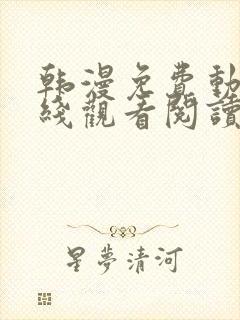 韩漫免費動
綫觀看閱讀
星夢清河